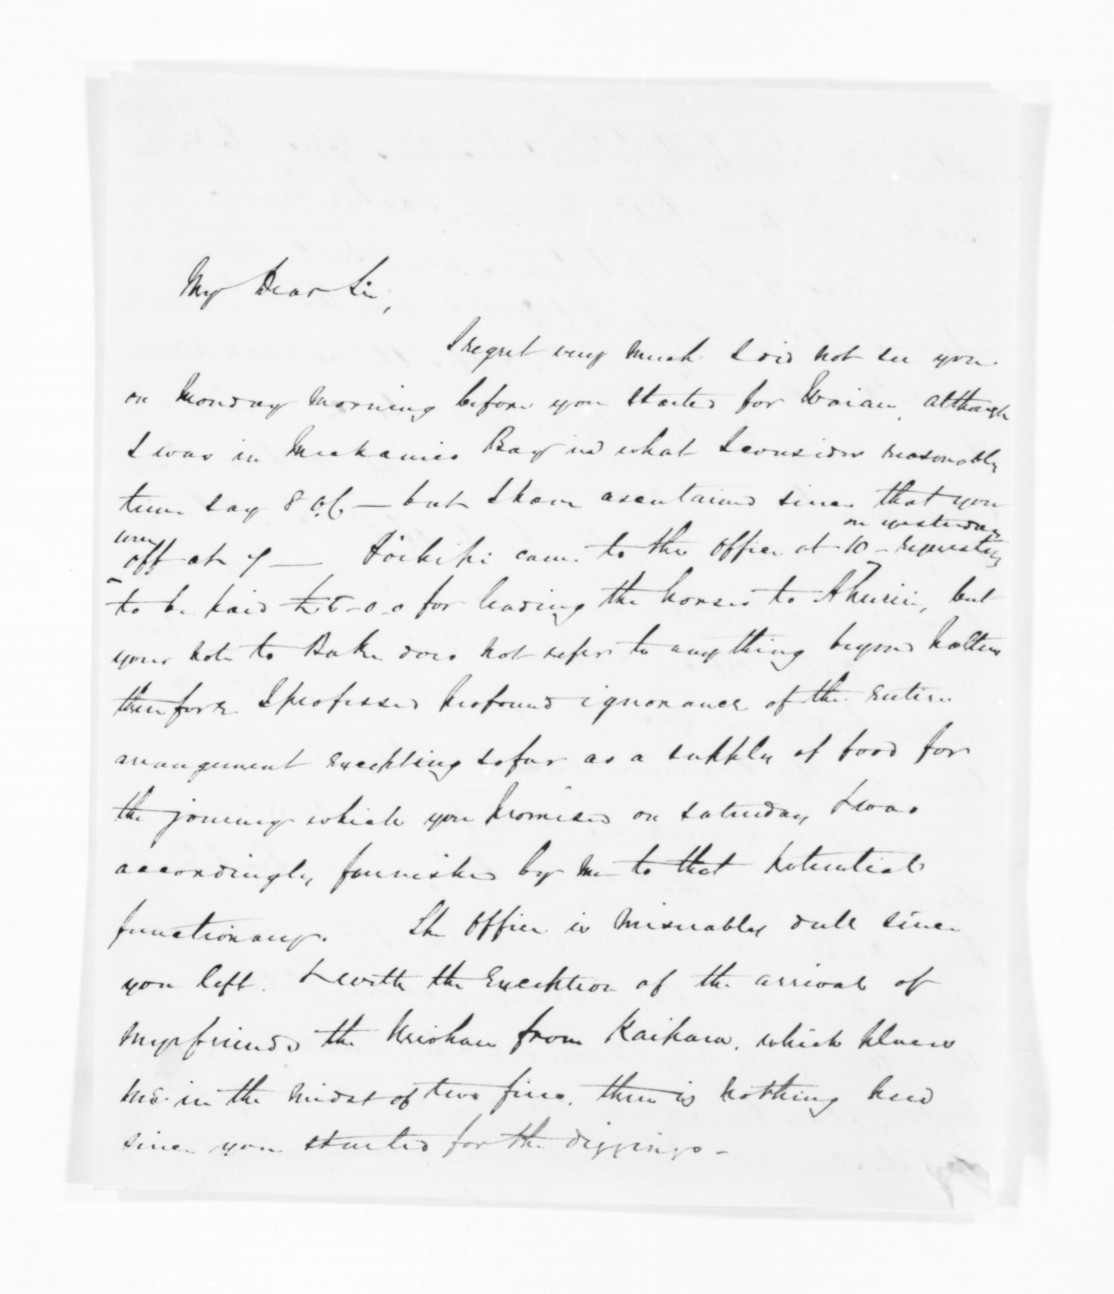 My Dear Sir,
I regret very much I did not see you
on Monday morning before you started for Waiau, although
I was in Mechanics Bay in what I consider reasonable
time say 8 o.C. — but I have ascertained since that you
were off at 7 — came to the office at 10 on yesterday requesting
to be paid £5-0-0 for leading the horses to Ahuriri, but
your note to Baker does not refer to anything beyond
therefore I professed profound ignorance of the entire
arrangement excepting so far as a supply of food for
the journey which you promised on Saturday, & was
accordingly furnished by me to that potential
functionary. The office is miserably dull since
you left. & with the exception of the arrival of
my friends the from Kaipara, which places
me in the midst of two fires, there is nothing new
since you started for the diggings -